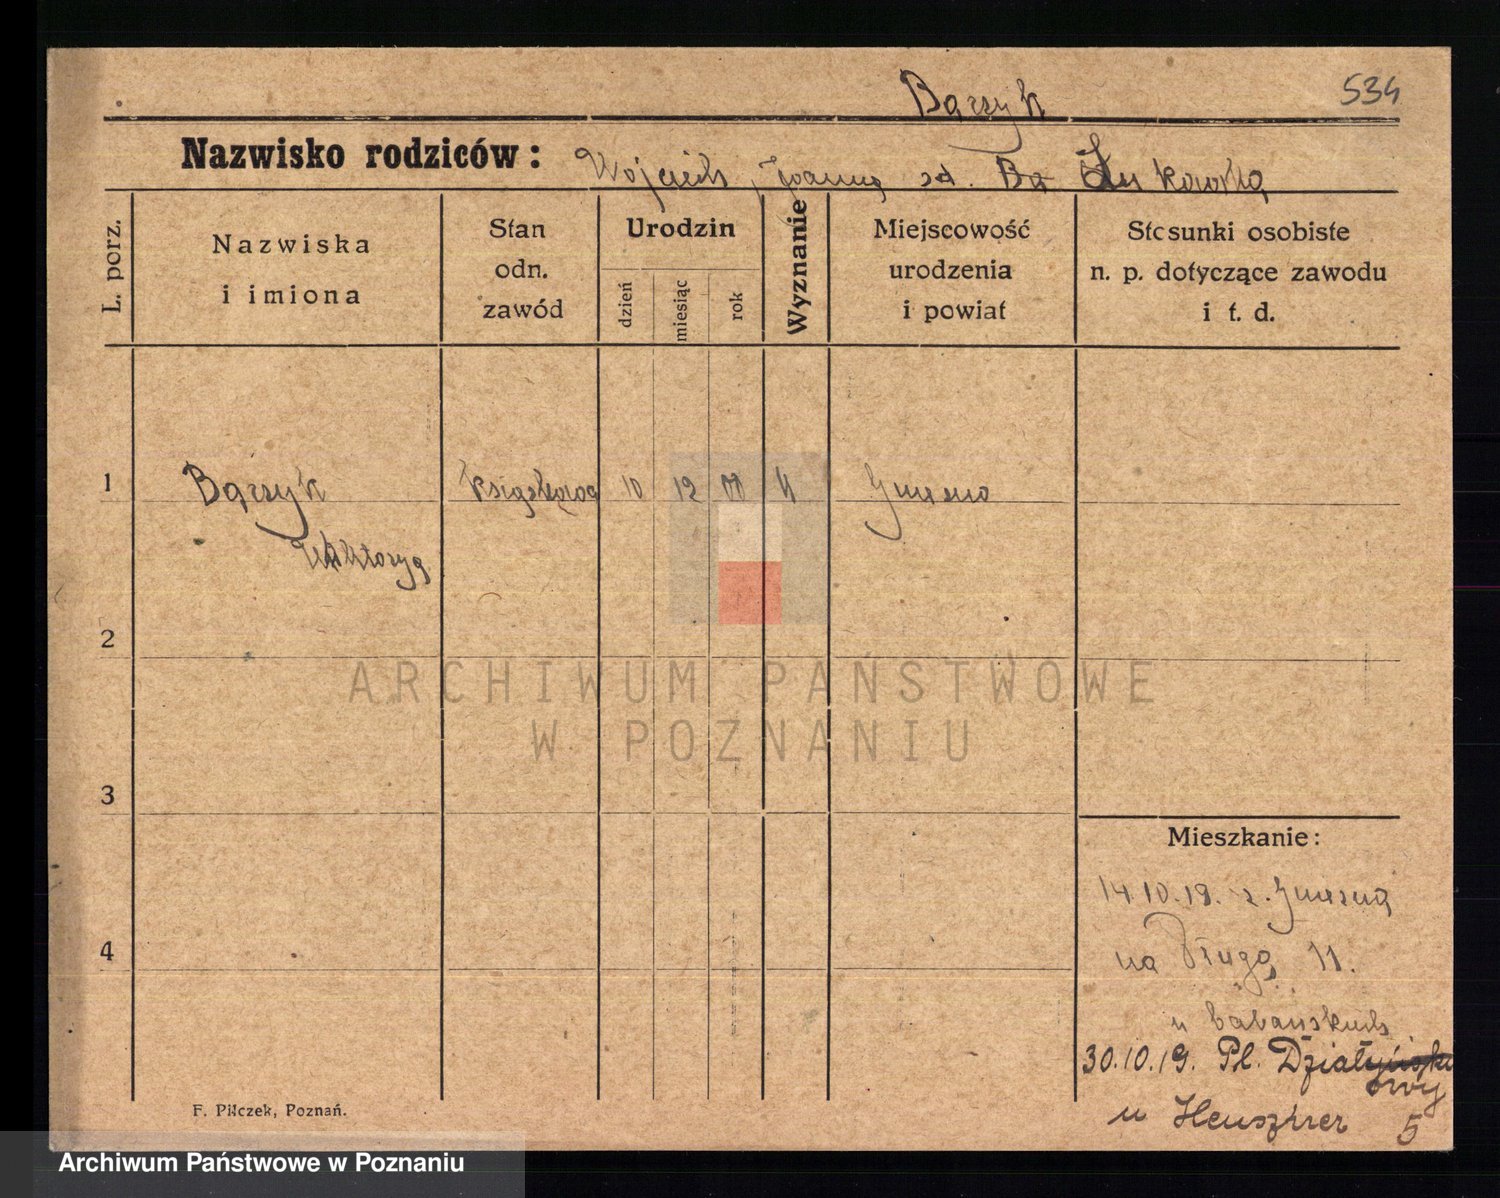 Bąrzyk
534
Nazwisko rodziców: Wojciech, Joanna zd.
L. porz.
Nazwiska i imiona
Stan odn. zawód
Urodzin
dzień
miesiąc
rok
Wyznanie
Miejscowość urodzenia i powiat
Stosunki osobiste n. p. dotyczące zawodu i t. d.
1 Bąrzyk 10 12 00
Wiktorya
2
3
4
Mieszkanie:
14 10.19. z
na Długą 11.
u
30.10.19. Pl. Działyński
owy
u 5
F. Pilczek, Poznań.
ARCHIWUM PAŃSTWOWE
W POZNANIU
Archiwum Państwowe w Poznaniu